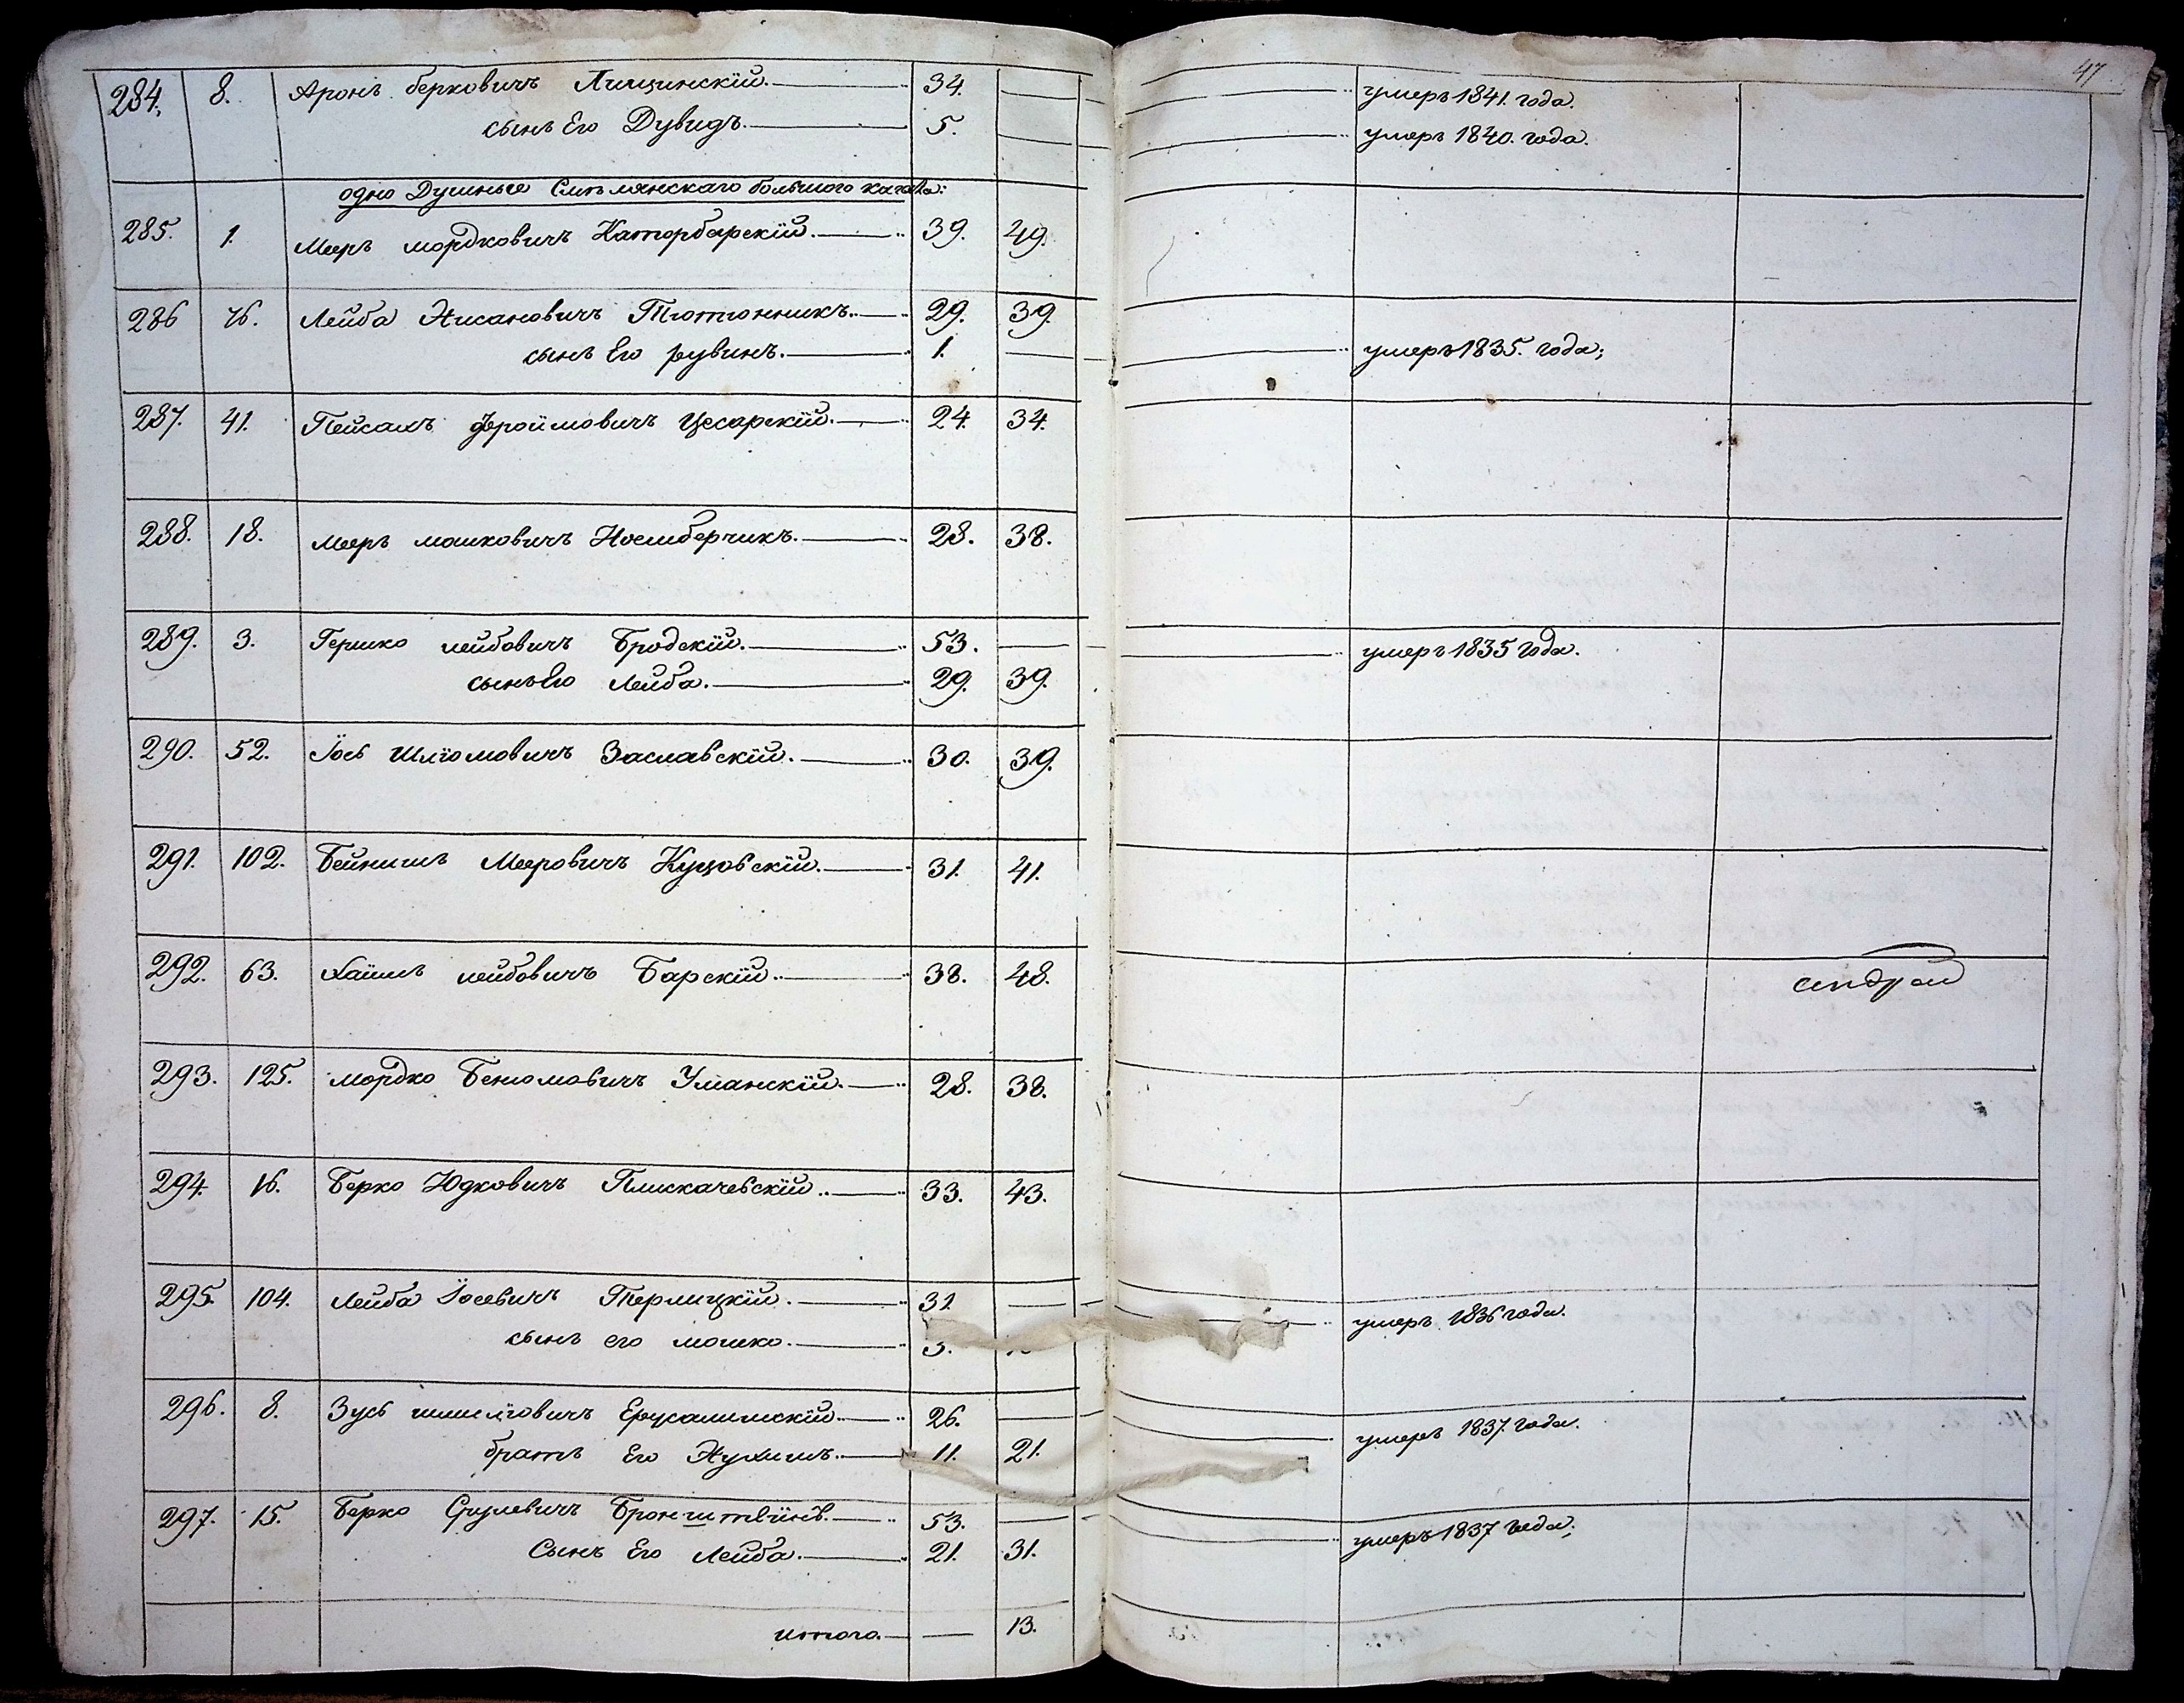 47
284. 8. Аронъ Берковичъ Лищинскій. 34. умеръ 1841. года.
сынъ Его Дувидъ. 5. умеръ 1840. года.
одно Душные Смѣлянскаго большого кагала:
285. 1. Мееръ мордковичъ Каторбарскій. 39. 49.
286 76. Лейба Нисановичъ Тютюнникъ. 29. 39.
сынъ Его рувинъ. 1. умеръ 1835. года;
287. 41. Пейсахъ Фроимовичъ Цесарскій. 24. 34.
288. 18. Мееръ мошковичъ 28. 38.
289. 3. Гершко лейбовичъ Бродскій. 53. умеръ 1835 года.
сынъ Его Лейба. 29. 39.
290. 52. Іось Шліомовичъ Заславскій. 30. 39.
291. 102. Бейнишъ Мееровичъ Куцовскій. 31. 41.
292. 63. Хаимъ лейбовичъ Барскій. 38. 48.
293. 125. Мордко Бенюмовичъ Уманскій. 28. 38.
294. 16. Берко Юдковичъ Плискачевскій. 33. 43.
295. 104. Лейба Іосевичъ Терлицкій. 31. умеръ 1836 года.
сынъ его мошко. 3.
296. 8. Зусь Ерусалимскій. 26. умеръ 1837. года.
братъ Его Нухимъ. 11. 21.
297. 15. Берко Срулевичъ Бронштейнъ. 53. умеръ 1837 года;
Сынъ Его Лейба. 21. 31.
итого. 13.